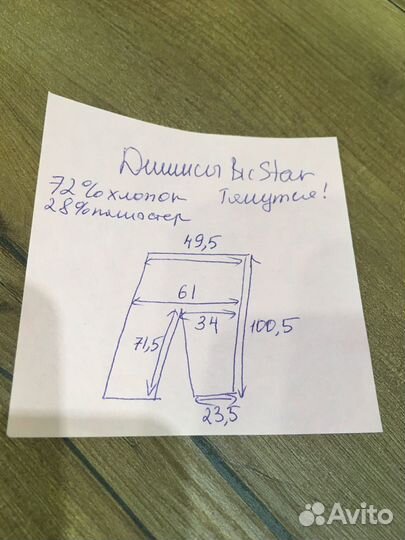 Джинсы Bic Star
72% хлопок Тянутся!
28% полиэстер
49,5
61
34
71,5
100,5
23,5
Avito